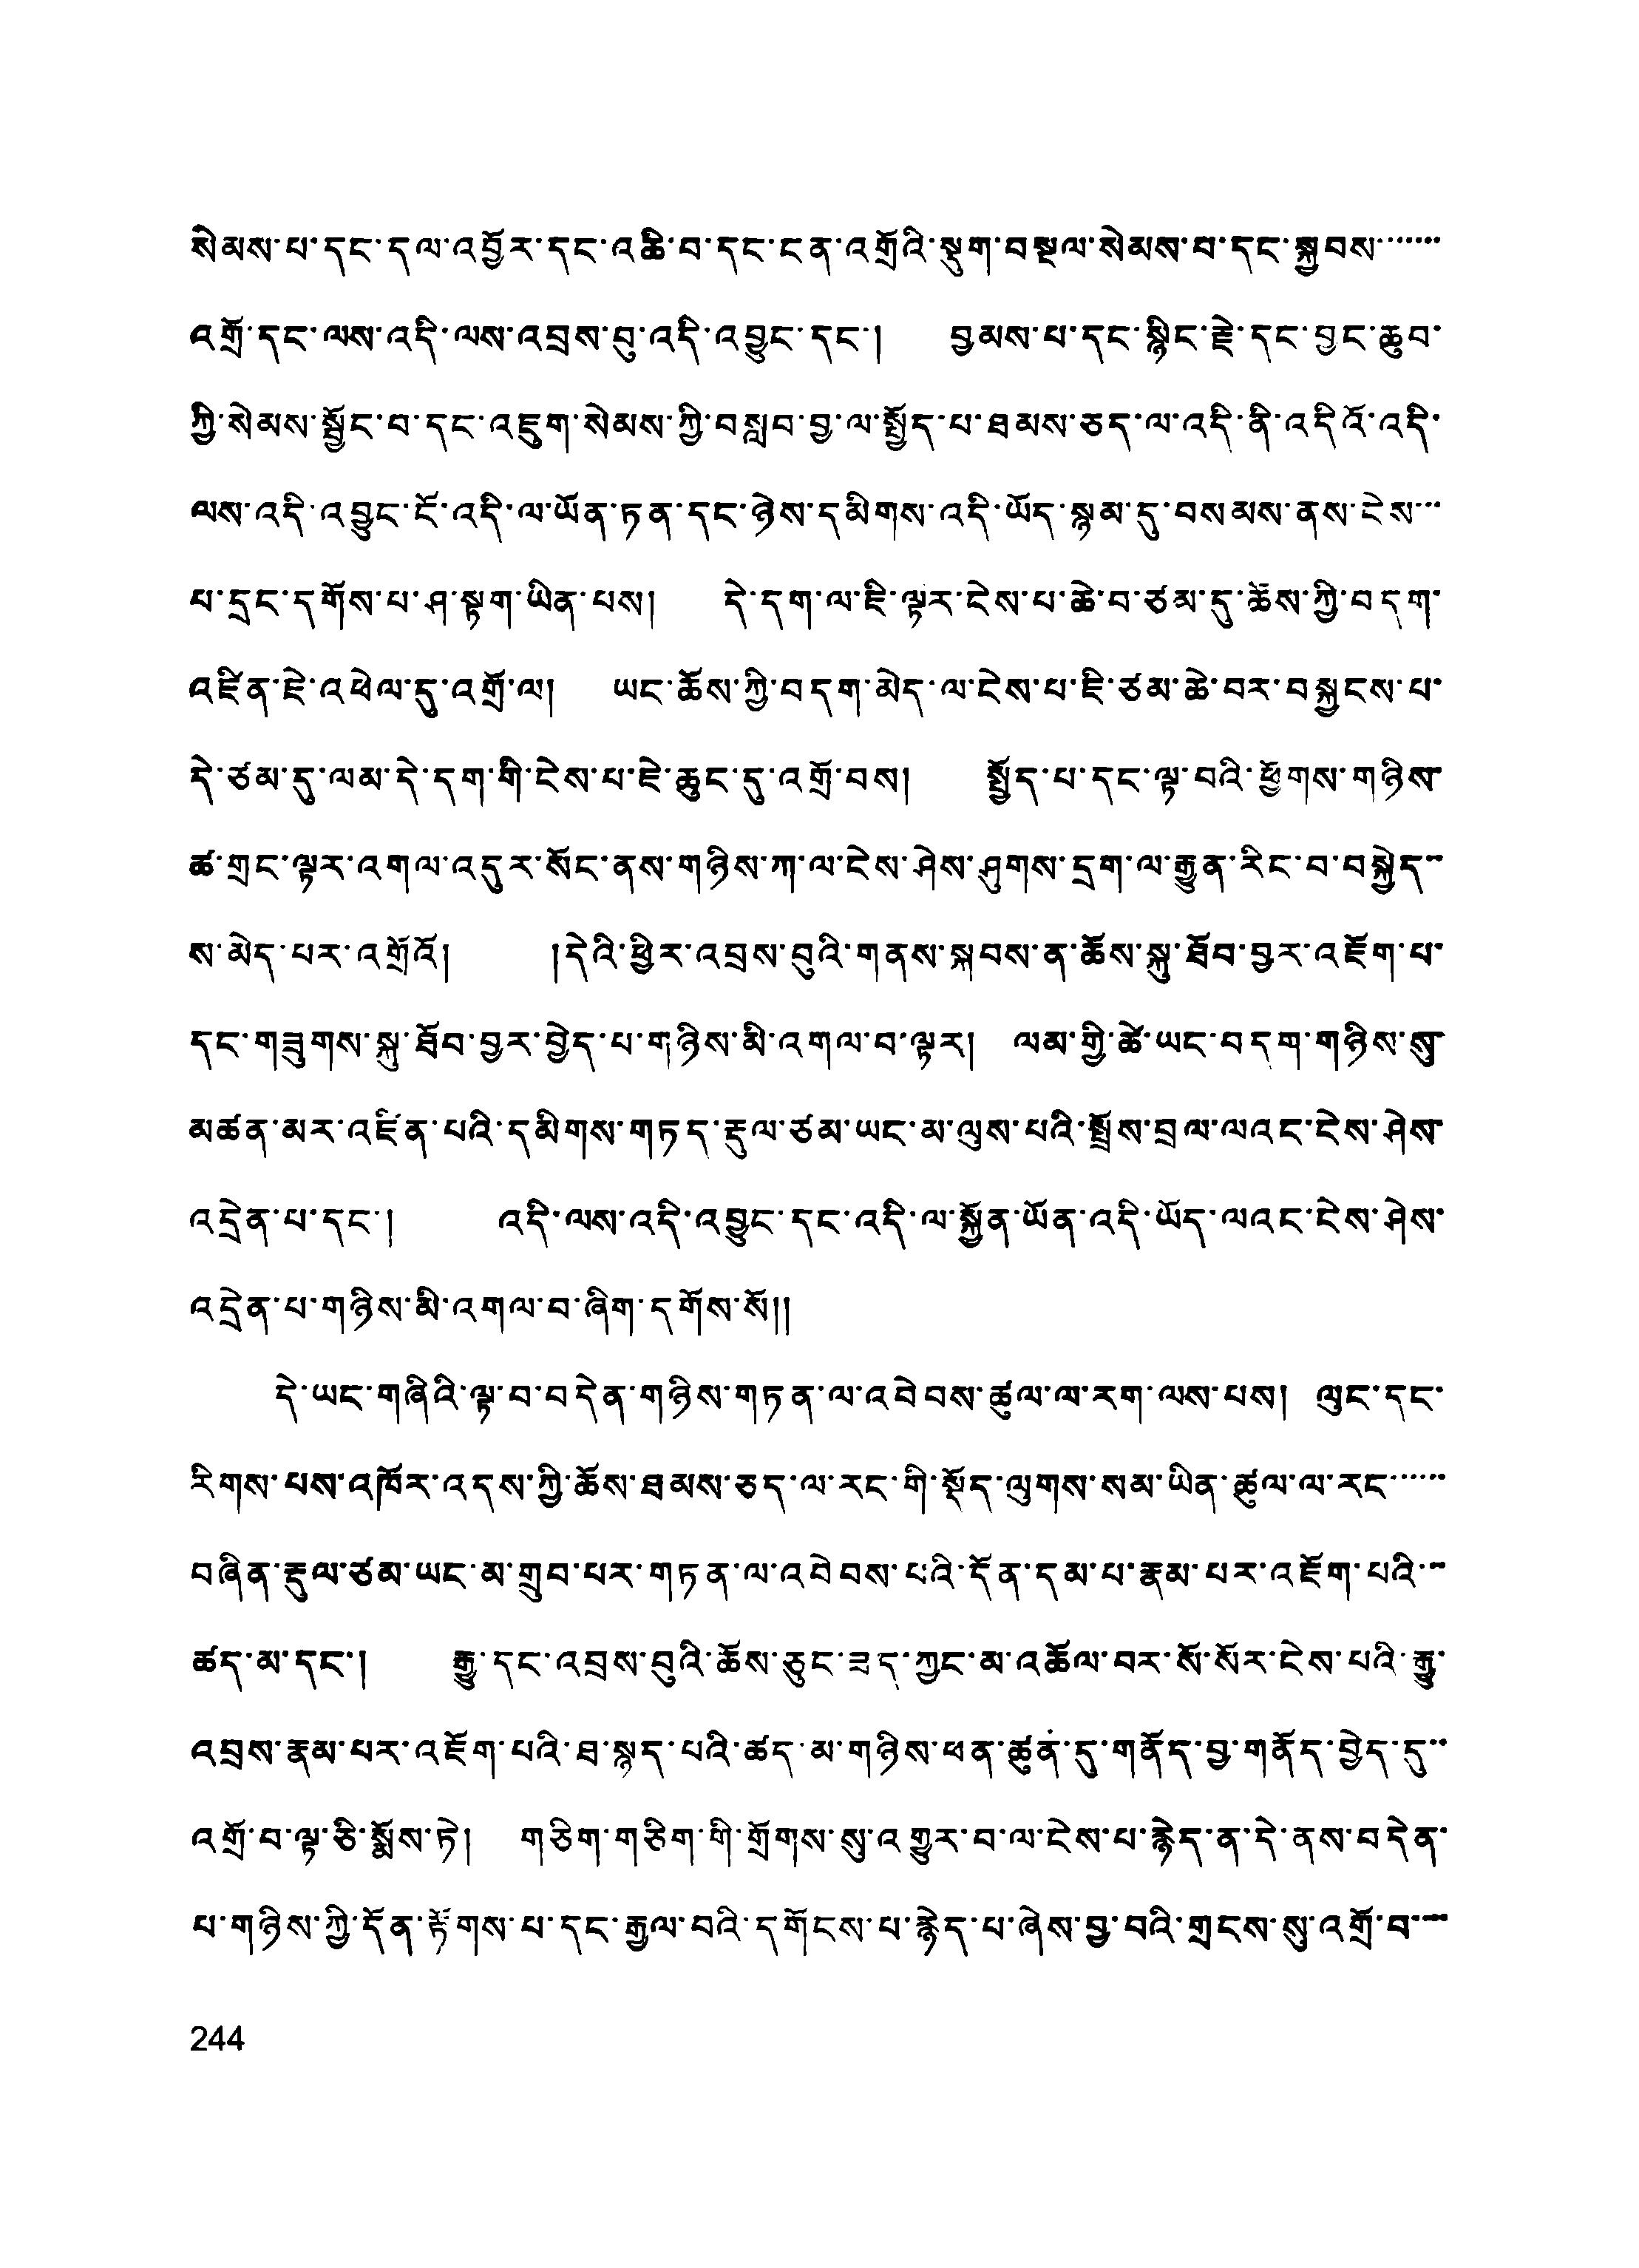 སེམས་པ་དང་དལ་འབྱོར་དང་འཆི་བ་དང་ངན་འགྲོའི་སྡུག་བསྔལ་སེམས་པ་དང་སྐྱབས་་་་་་་
འགྲོ་དང་ལས་འདི་ལས་འབྲས་བུ་འདི་འབྱུང་དང་། བྱམས་པ་དང་སྙིང་རྗེ་དང་བྱང་ཆུབ་
ཀྱི་སེམས་སྦྱོང་བ་དང་འཇུག་སེམས་ཀྱི་བསླབ་བྱ་ལ་སྤྱོད་པ་ཐམས་ཅད་ལ་འདི་ནི་འདིའོ་འདི་
ལས་འདི་འབྱུང་ངོ་འདི་ལ་ཡོན་ཏན་དང་ཉེས་དམིགས་འདི་ཡོད་སྙམ་དུ་བསམས་ནས་ངེས་་་
པ་དྲང་དགོས་པ་ཤ་སྟག་ཡིན་པས། དེ་དག་ལ་ཇི་ལྟར་ངེས་པ་ཆེ་བ་ཙམ་དུ་ཆོས་ཀྱི་བདག་
འཛིན་ཇེ་འཕེལ་དུ་འགྲོ་ལ། ཡང་ཆོས་ཀྱི་བདག་མེད་ལ་ངེས་པ་ཇི་ཙམ་ཆེ་བར་བསྐྱངས་པ་
དེ་ཙམ་དུ་ལམ་དེ་དག་གི་ངེས་པ་ཇེ་ཆུང་དུ་འགྲོ་བས། སྤྱོད་པ་དང་ལྟ་བའི་ཕྱོགས་གཉིས་
ཚ་གྲང་ལྟར་འགལ་འདུར་སོང་ནས་གཉིས་ཀ་ལ་ངེས་ཤེས་ཤུགས་དྲག་ལ་རྒྱུན་རིང་བ་བསྐྱེད་་
ས་མེད་པར་འགྲོའོ། །དེའི་ཕྱིར་འབྲས་བུའི་གནས་སྐབས་ན་ཆོས་སྐུ་ཐོབ་བྱར་འཇོག་པ་
དང་གཟུགས་སྐུ་ཐོབ་བྱར་བྱེད་པ་གཉིས་མི་འགལ་བ་ལྟར། ལམ་གྱི་ཚེ་ཡང་བདག་གཉིས་སུ་
མཚན་མར་འཛིན་པའི་དམིགས་གཏད་རྡུལ་ཙམ་ཡང་མ་ལུས་པའི་སྤྲོས་བྲལ་ལའང་ངེས་ཤེས་
འདྲེན་པ་དང་། འདི་ལས་འདི་འབྱུང་དང་འདི་ལ་སྐྱོན་ཡོན་འདི་ཡོད་ལའང་ངེས་ཤེས་
འདྲེན་པ་གཉིས་མི་འགལ་བ་ཞིག་དགོས་སོ།།
དེ་ཡང་གཞིའི་ལྟ་བ་བདེན་གཉིས་གཏན་ལ་འབེབས་ཚུལ་ལ་རག་ལས་པས། ལུང་དང་
རིགས་པས་འཁོར་འདས་ཀྱི་ཆོས་ཐམས་ཅད་ལ་རང་གི་སྡོད་ལུགས་སམ་ཡིན་ཚུལ་ལ་རང་་་་་་
བཞིན་རྡུལ་ཙམ་ཡང་མ་གྲུབ་པར་གཏན་ལ་འབེབས་པའི་དོན་དམ་པ་རྣམ་པར་འཇོག་པའི་་་
ཚད་མ་དང་། རྒྱུ་དང་འབྲས་བུའི་ཆོས་ཅུང་ཟད་ཀྱང་མ་འཆོལ་བར་སོ་སོར་ངེས་པའི་རྒྱུ་
འབྲས་རྣམ་པར་འཇོག་པའི་ཐ་སྙད་པའི་ཚད་མ་གཉིས་ཕན་ཚུནཾ་དུ་གནོད་བྱ་གནོད་བྱེད་དུ་་
འགྲོ་བ་ལྟ་ཅི་སྨོས་ཏེ། གཅིག་གཅིག་གི་གྲོགས་སུ་འགྱུར་བ་ལ་ངེས་པ་རྙེད་ན་དེ་ནས་བདེན་
པ་གཉིས་ཀྱི་དོན་རྟོགས་པ་དང་རྒྱལ་བའི་དགོངས་པ་རྙེད་པ་ཞེས་བྱ་བའི་གྲངས་སུ་འགྲོ་བ་་་
244